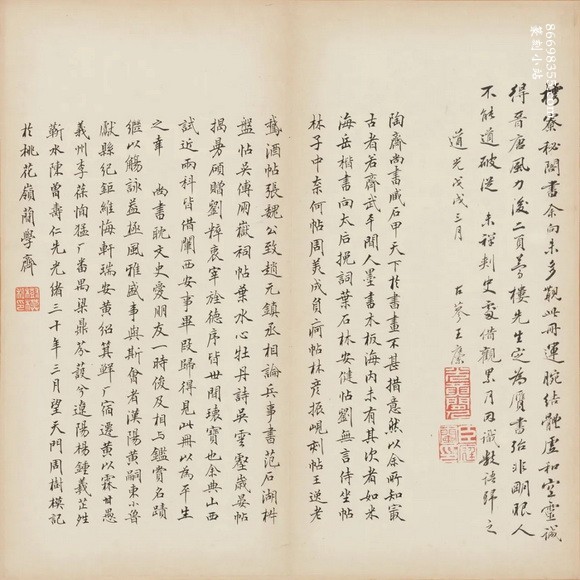 樗寮秘閣書余向未多觀此冊運腕結體虛和空靈誠
得晉唐風力後二頁蓴樓先生定為贋書殆非明眼人
不能道破從未禪刺史處借觀累月因識數語歸之
道光戊戌三月
古蓼王
陶齋尚書藏石甲天下於書畫不甚措意然以余所知冣
古者若齋武平間人墨書木板海內未有其次者如米
海岳楷書向太后挽詞葉石林安健帖劉無言侍坐帖
林子中奈何帖周美成負痾帖林彥振峴刻帖王逨老
鵞酒帖張魏公致趙元鎮丞相論兵事書范石湖柈
盤帖吳傅朋嶽祠帖葉水心牡丹詩吳雲壑歲晏帖
揭曼碩贈劉粹衷宰旌德序皆世間瓌寶也余典山西
試近兩科皆借闈西安事畢歸得見此冊以為平生
之幸尚書耽文史愛朋友一時俊及相與鑑賞名蹟
繼以觴詠益極風雅盛事與斯會者漢陽黃嗣東小魯
獻縣紀鉅維悔軒瑞安黃紹箕鮮厂宿遷黃以霖廿愚
義州李葆恂猛厂番禺梁鼎芬設兮遼陽楊鍾羲芷姓
蘄水陳曾壽仁先光緒三十年三月望天門周樹模記
於桃花嶺蕳學齋
篆刻小站